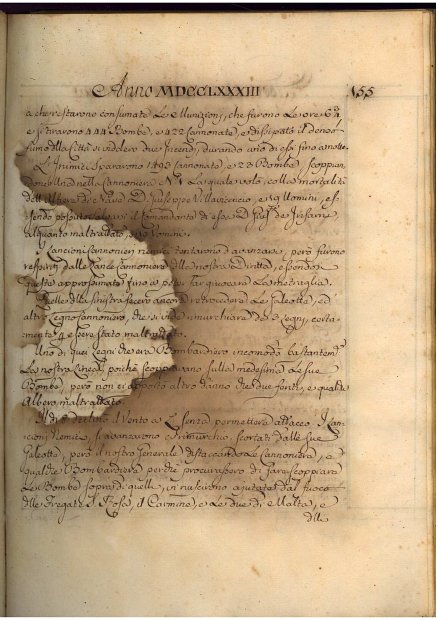 Anno MDCCLXXXIII 155
a che restarono consumate le Munizioni, che furono le ore 6
e si tirarono 444 Bombe, e 422 Cannonate, e dissipato il denso
fumo della Città si videro due Incendj, durando uno di essi fino a notte
L'Inimici spararono 1498 Cannonate, e 23 Bombe,
done una nella Cannoniera N.º 1 la quale volò, colla mortalità
dell'Alferez di Nave D. Giuseppe Villavicencio, e 19 Uomini, es-
sendo potuto salvarsi il Comandante di essa D.
alquanto maltrattato, Uomini.
I Lancioni Cannonieri nemici tentarono d'avanzare, però furono
respinti dalle Lancie Cannoniere della nostra Diritta, essendosi
queste approssimate fino a poter far giuocare la metraglia.
Quelle della sinistra fecero ancora retrocedere le Galeotte, ed
altro Legno Cannoniere, che si vide rimurchiare da 2 Legni, certa-
mente essere stato maltrattato.
Uno di quei Legni che era Bombardiero incomodò bastantem.
la nostra Linea, poiché scoppiavano sulla medesima le sue
Bombe, però non ci apportò altro danno che due feriti, e qualche
Albero maltrattato.
Il dì declinò il Vento a senza permettere attacco. I Lan-
cioni Nemici si avanzarono a rimurchio, scortati dalle sue
Galeotte, però il nostro Generale distaccando le Cannoniere, e
qualche Bombardiera perché procurassero di fare scoppiare
le Bombe sopra di quelle, vi riuscirono ajutate dal fuoco
delle Fregate S. Rosa, il Carmine, e le due di Malta, e